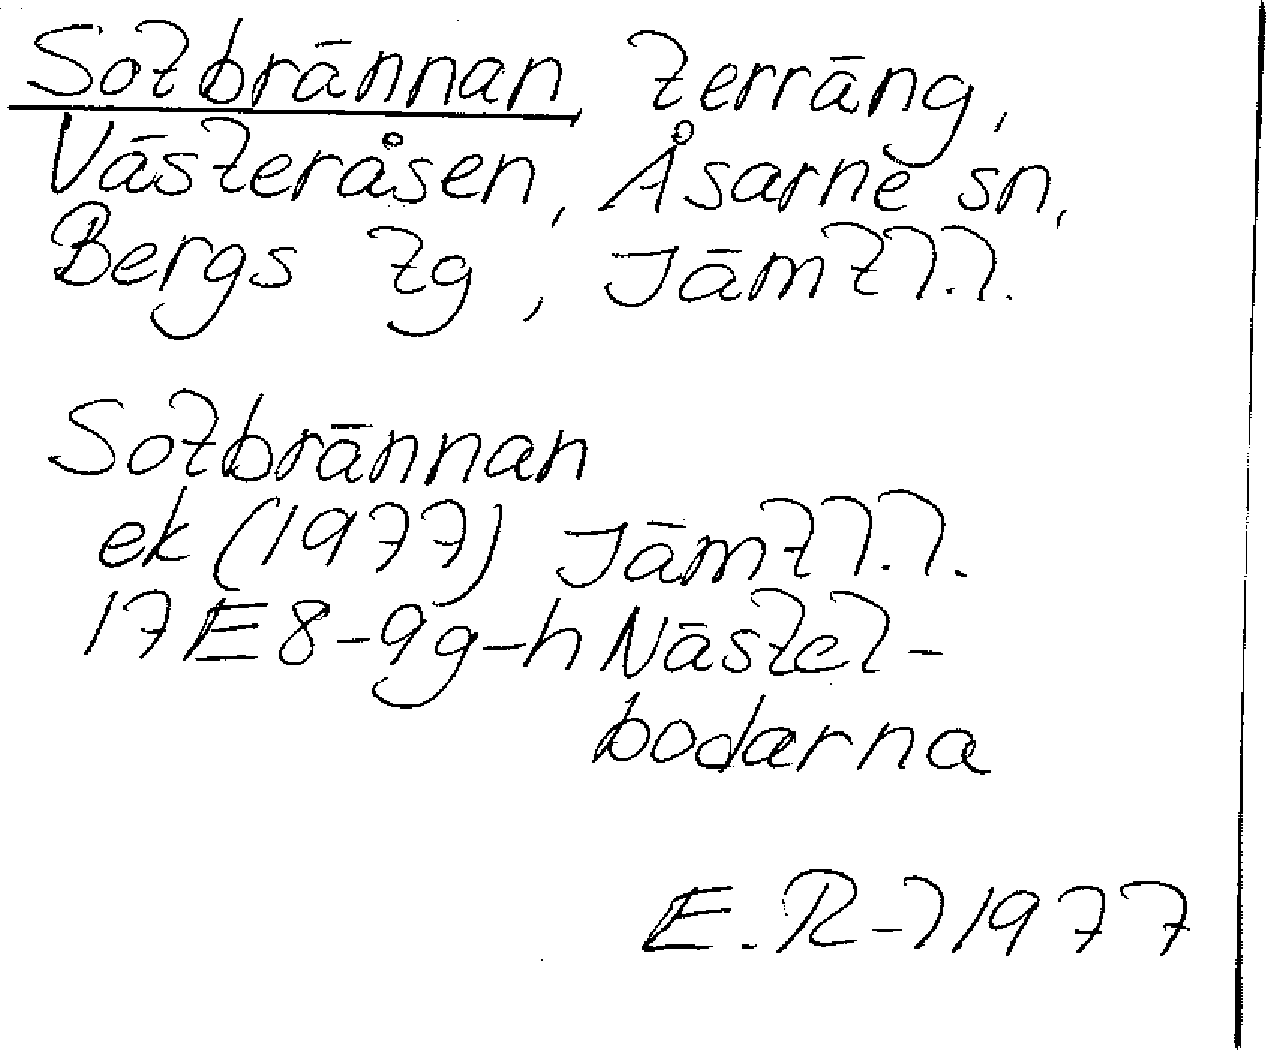 Sotbrännan, terräng,
Västeråsen, Åsarne sn,
Bergs tg, Jämtl.l.
Sotbrännan
ek (1977) Jämtl.l.
17E 8-9g-h Nästel-
bodarna
E.R-l 1977